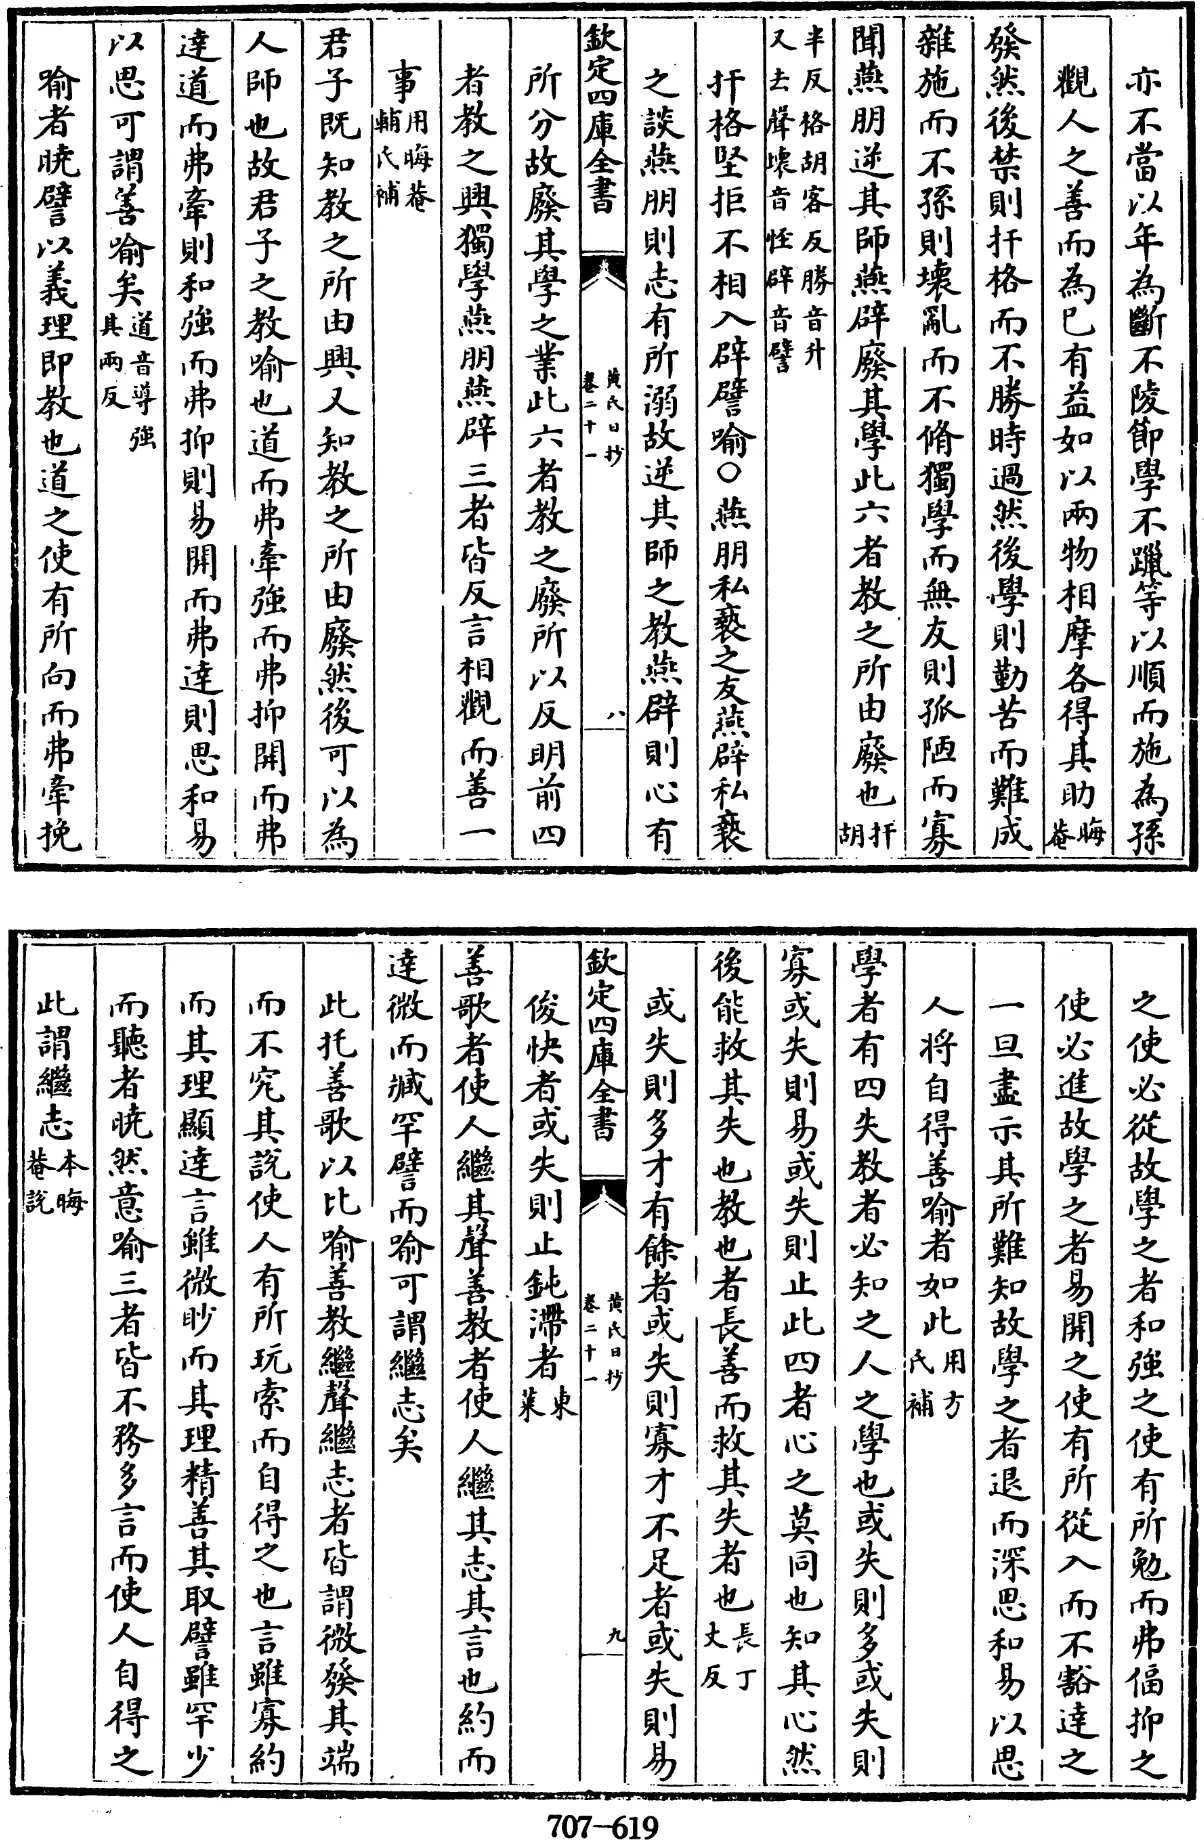 亦不當以年為斷不陵節學不躐等以順而施為孫
觀人之善而為已有益如以兩物相摩各得其助晦菴
發然後禁則扞格而不勝時過然後學則勤苦而難成
雜施而不孫則壞亂而不脩獨學而無友則孤陋而寡
聞燕朋逆其師燕辟廢其學此六者教之所由廢也扞胡
半反格胡客反勝音升
又去聲壞音恠辟音譬
扞格堅拒不相入辟譬喻○燕朋私褻之友燕辟私褻
之談燕朋則志有所溺故逆其師之教燕辟則心有
欽定四庫全書 黃氏日抄 卷二十一 八
所分故廢其學之業此六者教之廢所以反明前四
者教之興獨學燕朋燕辟三者皆反言相觀而善一
事用晦菴輔氏補
君子既知教之所由興又知教之所由廢然後可以為
人師也故君子之教喻也道而弗牽強而弗抑開而弗
達道而弗牽則和強而弗抑則易開而弗達則思和易
以思可謂善喻矣道音導強其兩反
喻者曉譬以義理即教也道之使有所向而弗牽挽
之使必從故學之者和強之使有所勉而弗偪抑之
使必進故學之者易開之使有所從入而不豁達之
一旦盡示其所難知故學之者退而深思和易以思
人將自得善喻者如此用方氏補
學者有四失教者必知之人之學也或失則多或失則
寡或失則易或失則止此四者心之莫同也知其心然
後能救其失也教也者長善而救其失者也長丁丈反
或失則多才有餘者或失則寡才不足者或失則易
欽定四庫全書 黃氏日抄 卷二十一 九
俊快者或失則止鈍滯者東萊
善歌者使人繼其聲善教者使人繼其志其言也約而
達微而臧罕譬而喻可謂繼志矣
此托善歌以比喻善教繼聲繼志者皆謂微發其端
而不究其說使人有所玩索而自得之也言雖寡約
而其理顯達言雖微眇而其理精善其取譬雖罕少
而聽者曉然意喻三者皆不務多言而使人自得之
此謂繼志本晦菴說
707-619